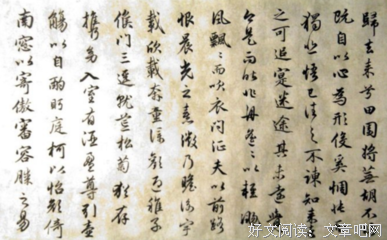 歸去來兮田園將蕪胡不
既自以心為形役奚惆悵
獨悲悟已往之不諫知來
之可追寔迷途其未遠
今是而昨非舟遙遙以輕颺
風飄飄而吹衣問征夫以前路
恨晨光之熹微乃瞻衡宇
載欣載奔童僕歡迎稚子
候門三逕就荒松菊猶存
攜幼入室有酒盈尊引壺
觴以自酌眄庭柯以怡顏倚
南窗以寄傲審容膝之易
好文阅读：文章吧网